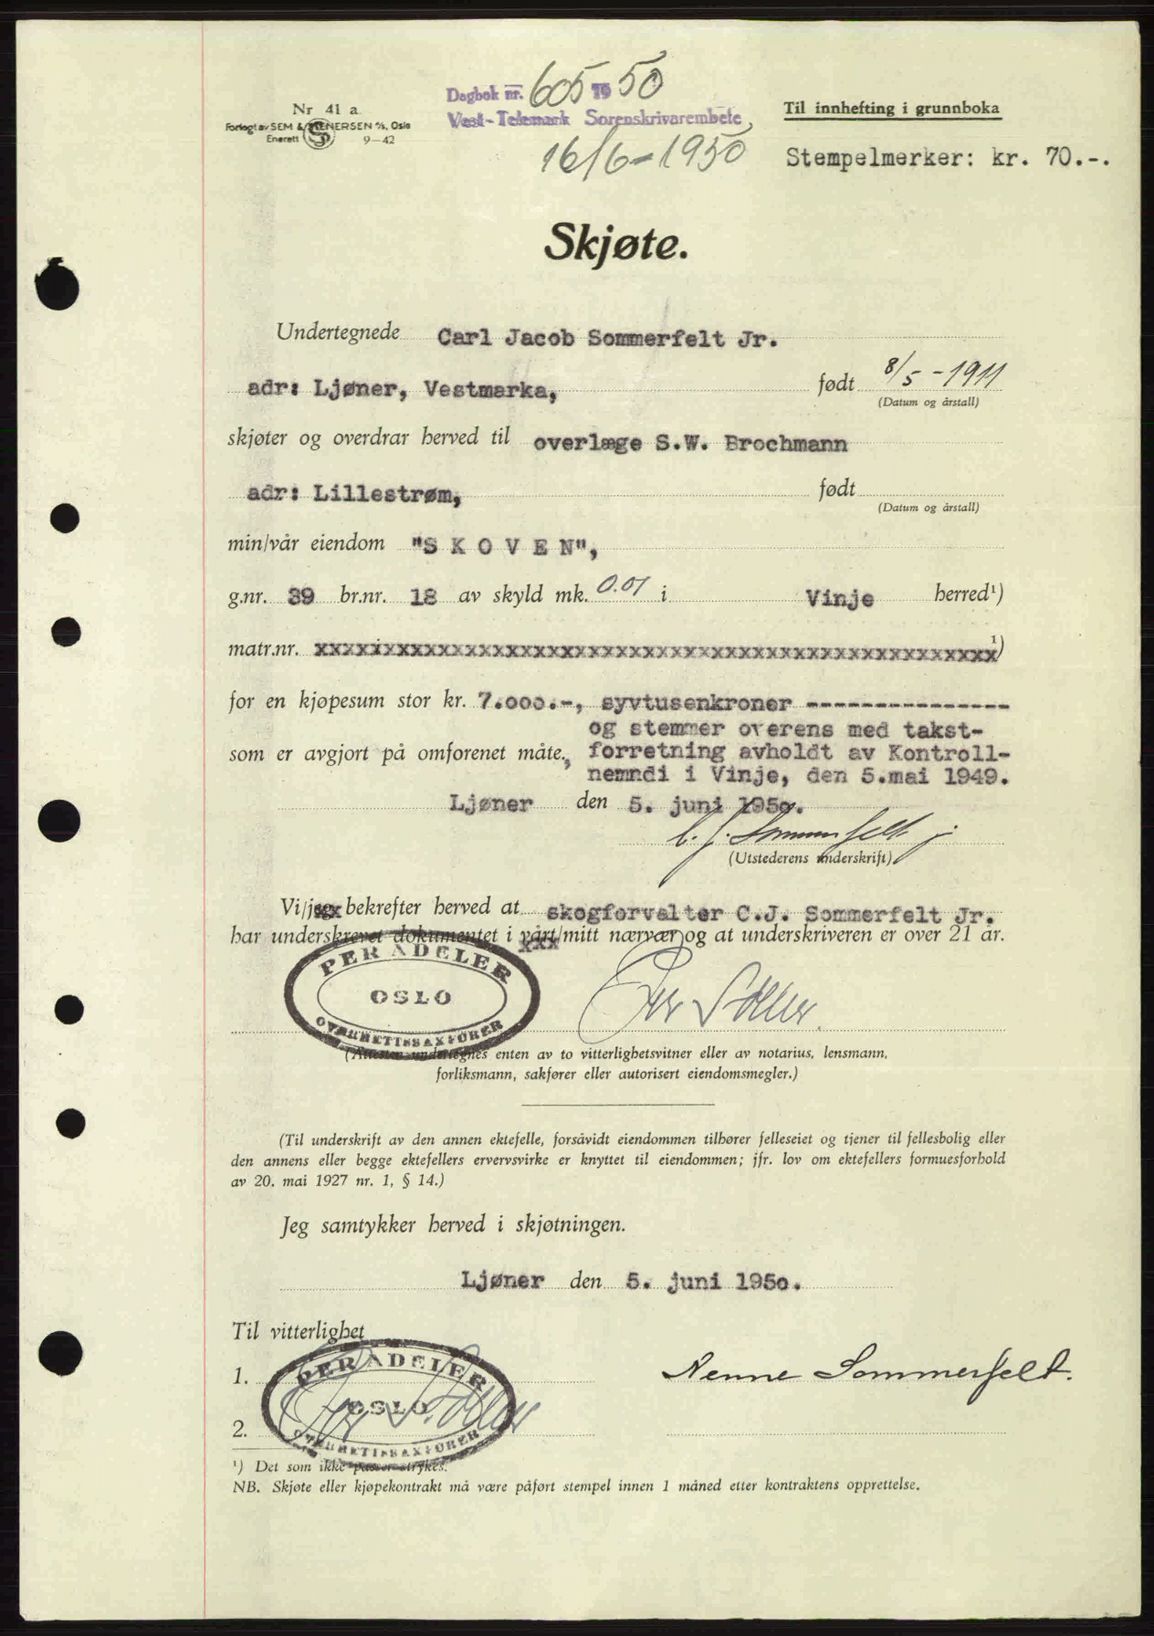 Nr. 41 a.
Forlagt av SEM & STENERSEN A/S, Oslo
Enerett 9-42
Dagbok nr. 605 1950
Vest-Telemark Sorenskrivarembete
16/6-1950
Til innhefting i grunnboka
Stempelmerker: kr. 70.-.
Skjøte.
Undertegnede Carl Jacob Sommerfelt Jr.
adr: Ljøner, Vestmarka, født 8/5-1911
(Datum og årstall)
skjøter og overdrar herved til overlæge S.W. Brochmann
adr: Lillestrøm, født
(Datum og årstall)
min/vår eiendom "S K O V E N",
g.nr. 39 br.nr. 18 av skyld mk. 0.01 i Vinje herred¹)
matr.nr. xxxxixxxxxxxxxxxxxxxxxxxxxxxxxxxxxxxxxxxxxxxxxxxxx ¹)
for en kjøpesum stor kr. 7.000.-, syvtusenkroner ---------------
og stemmer overens med takst-
som er avgjort på omforenet måte., forretning avholdt av Kontroll-
nemndi i Vinje, den 5.mai 1949.
Ljøner den 5. juni 1950.
C. J. Sommerfelt jr
(Utstederens underskrift)
Vi/jeg bekrefter herved at skogforvalter C.J. Sommerfelt Jr.
har underskrevet dokumentet i vårt/mitt nærvær og at underskriveren er over 21 år.
PER ADELER
OSLO
OVERRETTSSAKFØRER
Per Adeler.
(Attesten undertegnes enten av to vitterlighetsvitner eller av notarius, lensmann,
forliksmann, sakfører eller autorisert eiendomsmegler.)
(Til underskrift av den annen ektefelle, forsåvidt eiendommen tilhører felleseiet og tjener til fellesbolig eller
den annens eller begge ektefellers ervervsvirke er knyttet til eiendommen; jfr. lov om ektefellers formuesforhold
av 20. mai 1927 nr. 1, § 14.)
Jeg samtykker herved i skjøtningen.
Ljøner den 5. juni 1950.
Til vitterlighet
1. Nenne Sommerfelt.
PER ADELER
OSLO
OVERRETTSSAKFØRER
Per Adeler
2.
¹) Det som ikke passer strykes.
NB. Skjøte eller kjøpekontrakt må være påført stempel innen 1 måned etter kontraktens opprettelse.